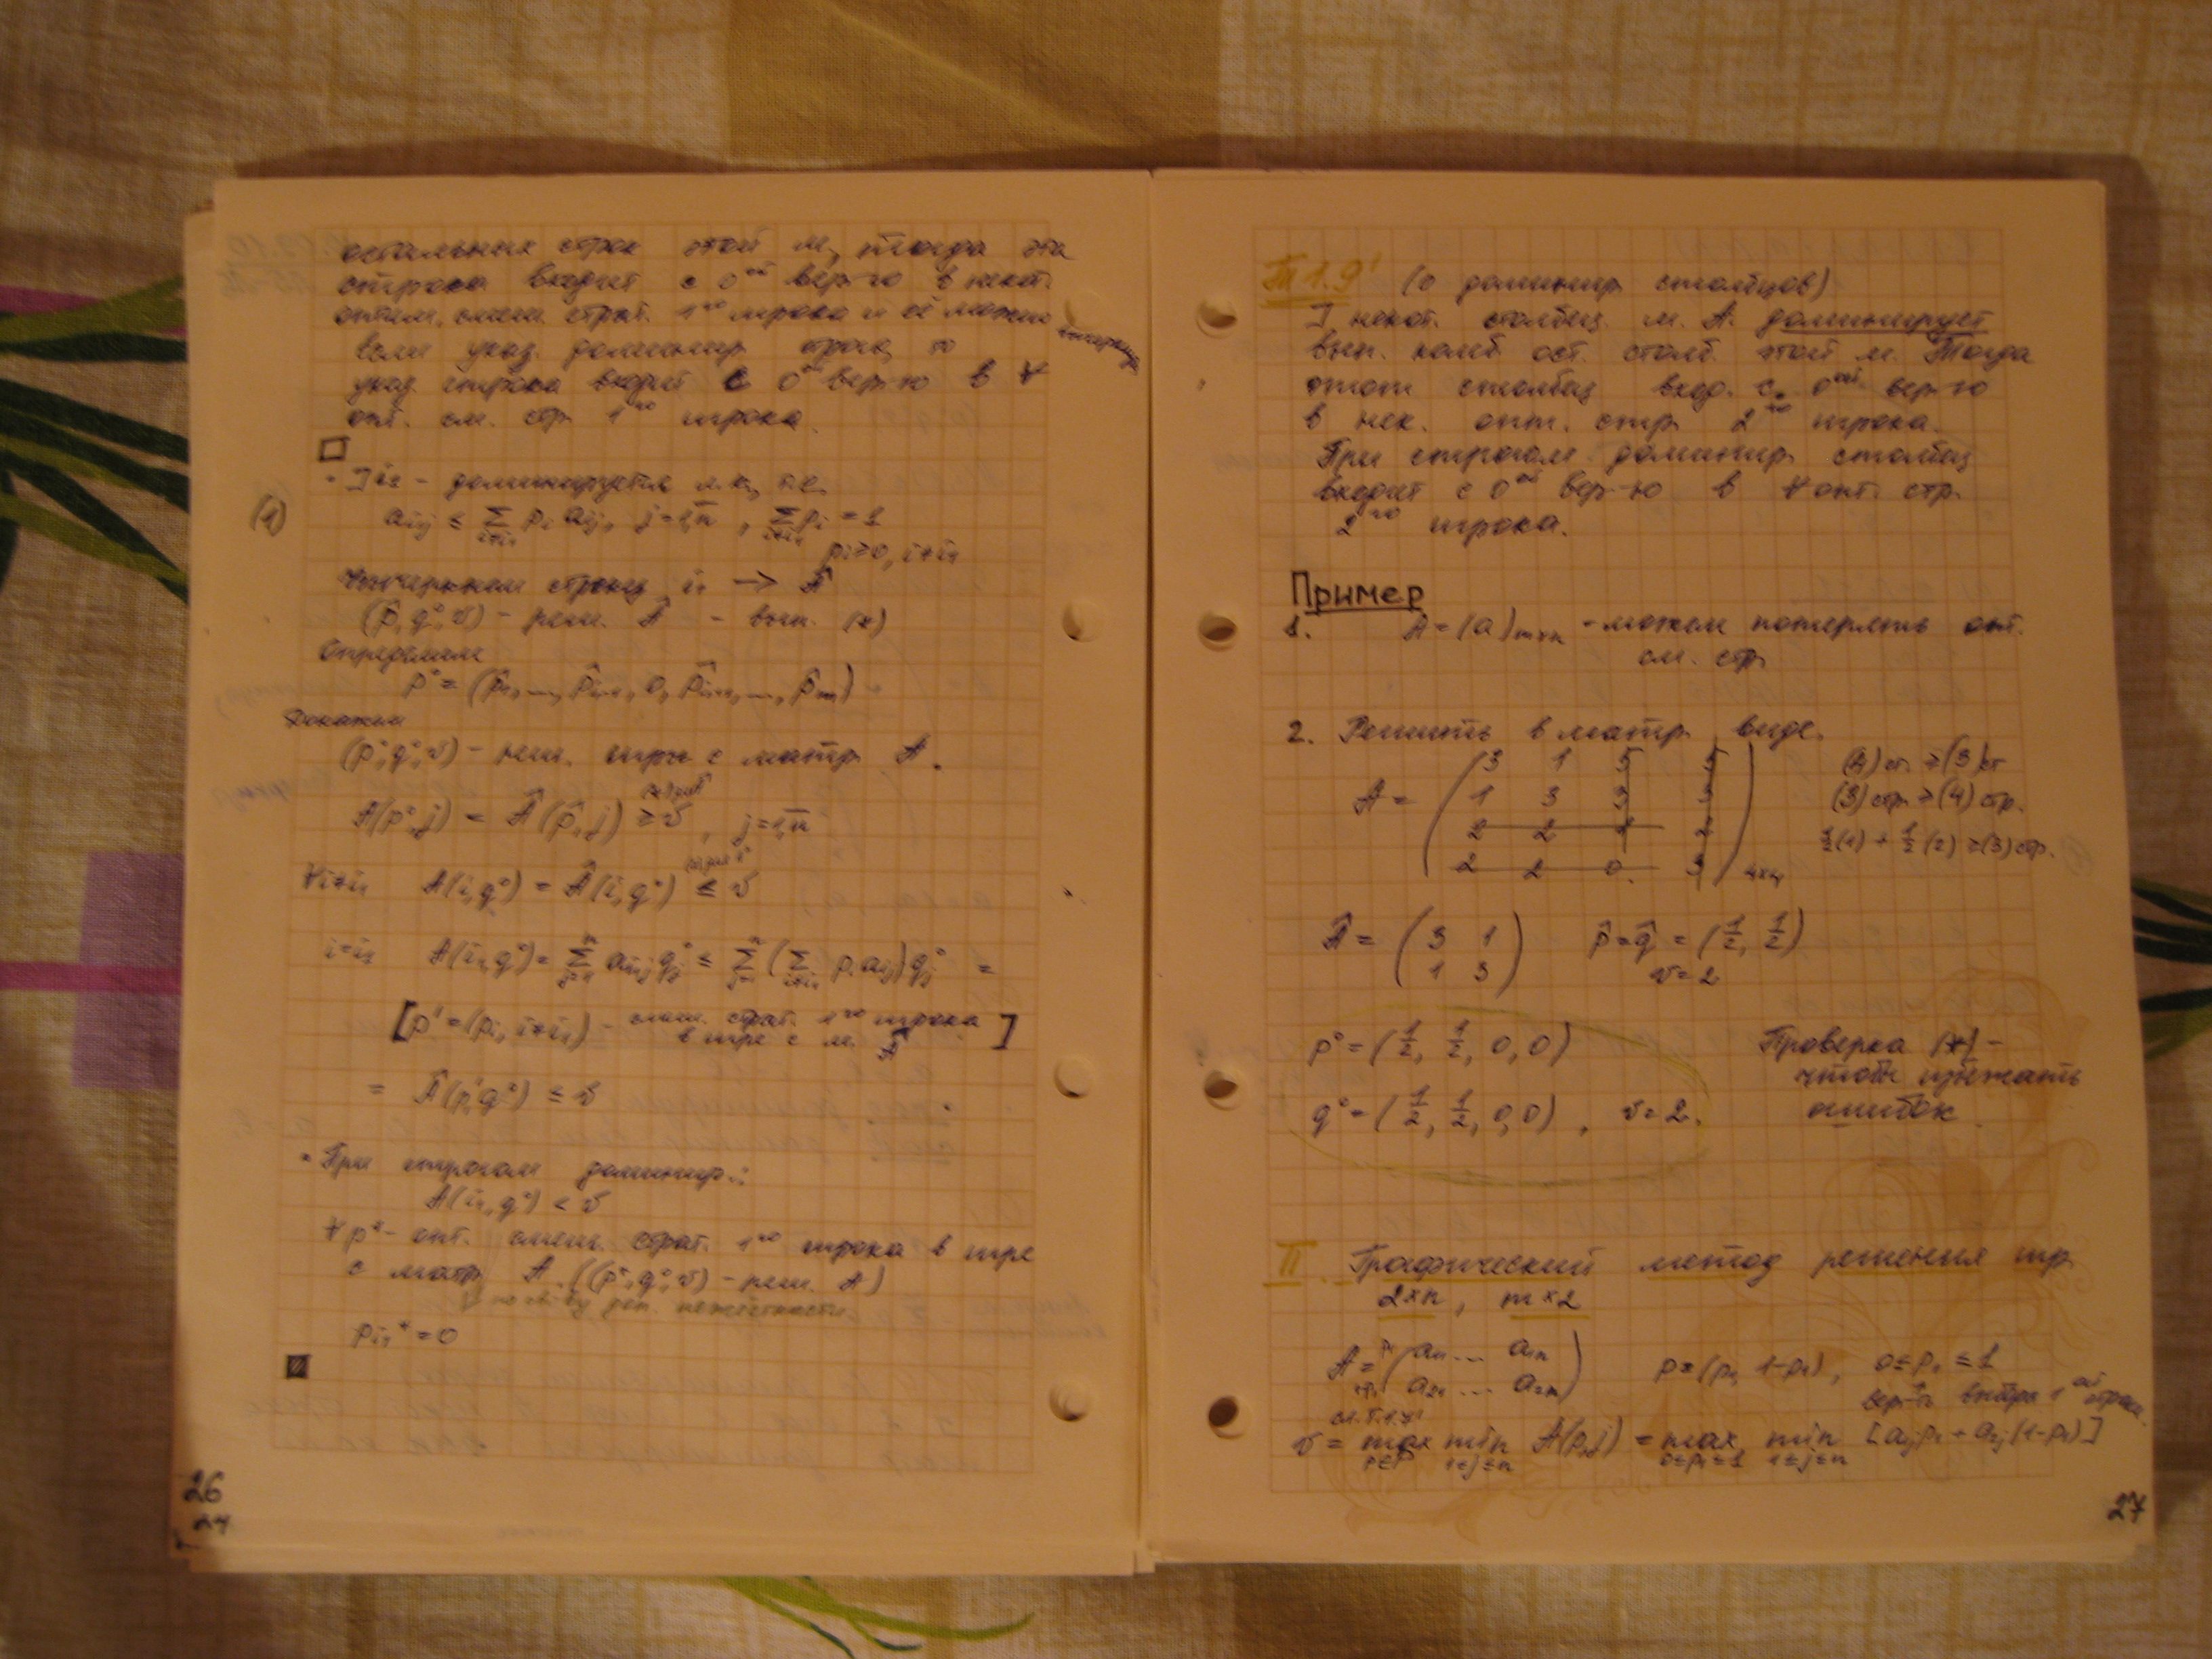 остальных строк этой м., тогда эта
строка входит с 0ой вер-ю в некот.
оптим. смеш. страт. 1го игрока и её можно вычеркнуть
Если указ. доминир. строг., то
указ. строка входит с 0й вер-ю в ∀
опт. см. стр. 1го игрока.
□
- ] i₁ - доминируется л.к., т.е.
(1) a_{i₁j} ≤ Σ_{i≠i₁} p_i a_{ij}, j=1,n̄, Σ_{i≠i₁} p_i = 1
p_i ≥ 0, i≠i₁
Вычеркнем строку i₁ → Â
(p̂, q°, v) - реш. Â - вып. (*)
Определим
p° = (p̂₁, ..., p̂_{i₁-1}, 0, p̂_{i₁+1}, ..., p̂_m)
Докажем
(p°, q°, v) - реш. игры с матр. A.
A(p°, j) = Â(p̂, j) ≥ v, j=1,n̄
∀i≠i₁ A(i, q°) = Â(i, q°) ≤ v
i=i₁ A(i₁, q°) = Σ_{j=1}^n a_{i₁j} q_j° ≤ Σ_{j=1}^n (Σ_{i≠i₁} p_i a_{ij}) q_j° =
[p' = (p_i, i≠i₁) - смеш. страт. 1го игрока
в игре с м. Â]
= Â(p', q°) ≤ v
- При строгом доминир.:
A(i₁, q°) < v
∀p* - опт. смеш. страт. 1го игрока в игре
с матр. A. ((p*, q°, v) - реш. A)
⇓ по св-ву доп. нежёсткости
p_{i₁}* = 0
■
26
Т 1.9' (о доминир. столбцов)
] некот. столбец м. A доминирует
вып. комб. ост. столб. этой м. Тогда
этот столбец вход. с 0ой вер-ю
в нек. опт. стр. 2го игрока.
При строгом доминир. столбец
входит с 0ой вер-ю в ∀ опт. стр.
2го игрока.
Пример
1. A = (a)_{m×n} - можем потерять опт.
см. стр.
2. Решить в матр. виде.
A = ( 3 1 5 5
1 3 3 3
2 2 1 2
2 2 0 3 )_{4×4}
(4) ст. ≥ (3) ст
(3) стр. ≥ (4) стр.
½(1) + ½(2) ≥ (3) стр.
Â = ( 3 1
1 3 ) p̂ = q̂ = (½, ½)
v = 2
p° = (½, ½, 0, 0) Проверка (*) -
чтобы избежать
q° = (½, ½, 0, 0), v = 2. ошибок.
II. Графический метод решения игр
2×n, m×2
A = p₁ ( a₁₁ ... a₁ₙ
1-p₁ a₂₁ ... a₂ₙ ) p = (p₁, 1-p₁), 0 ≤ p₁ ≤ 1
вер-ть выбора 1ой строки
см. Т.1.7'
v = max_{p∈P} min_{1≤j≤n} A(p, j) = max_{0≤p₁≤1} min_{1≤j≤n} [a₁ⱼp₁ + a₂ⱼ(1-p₁)]
27